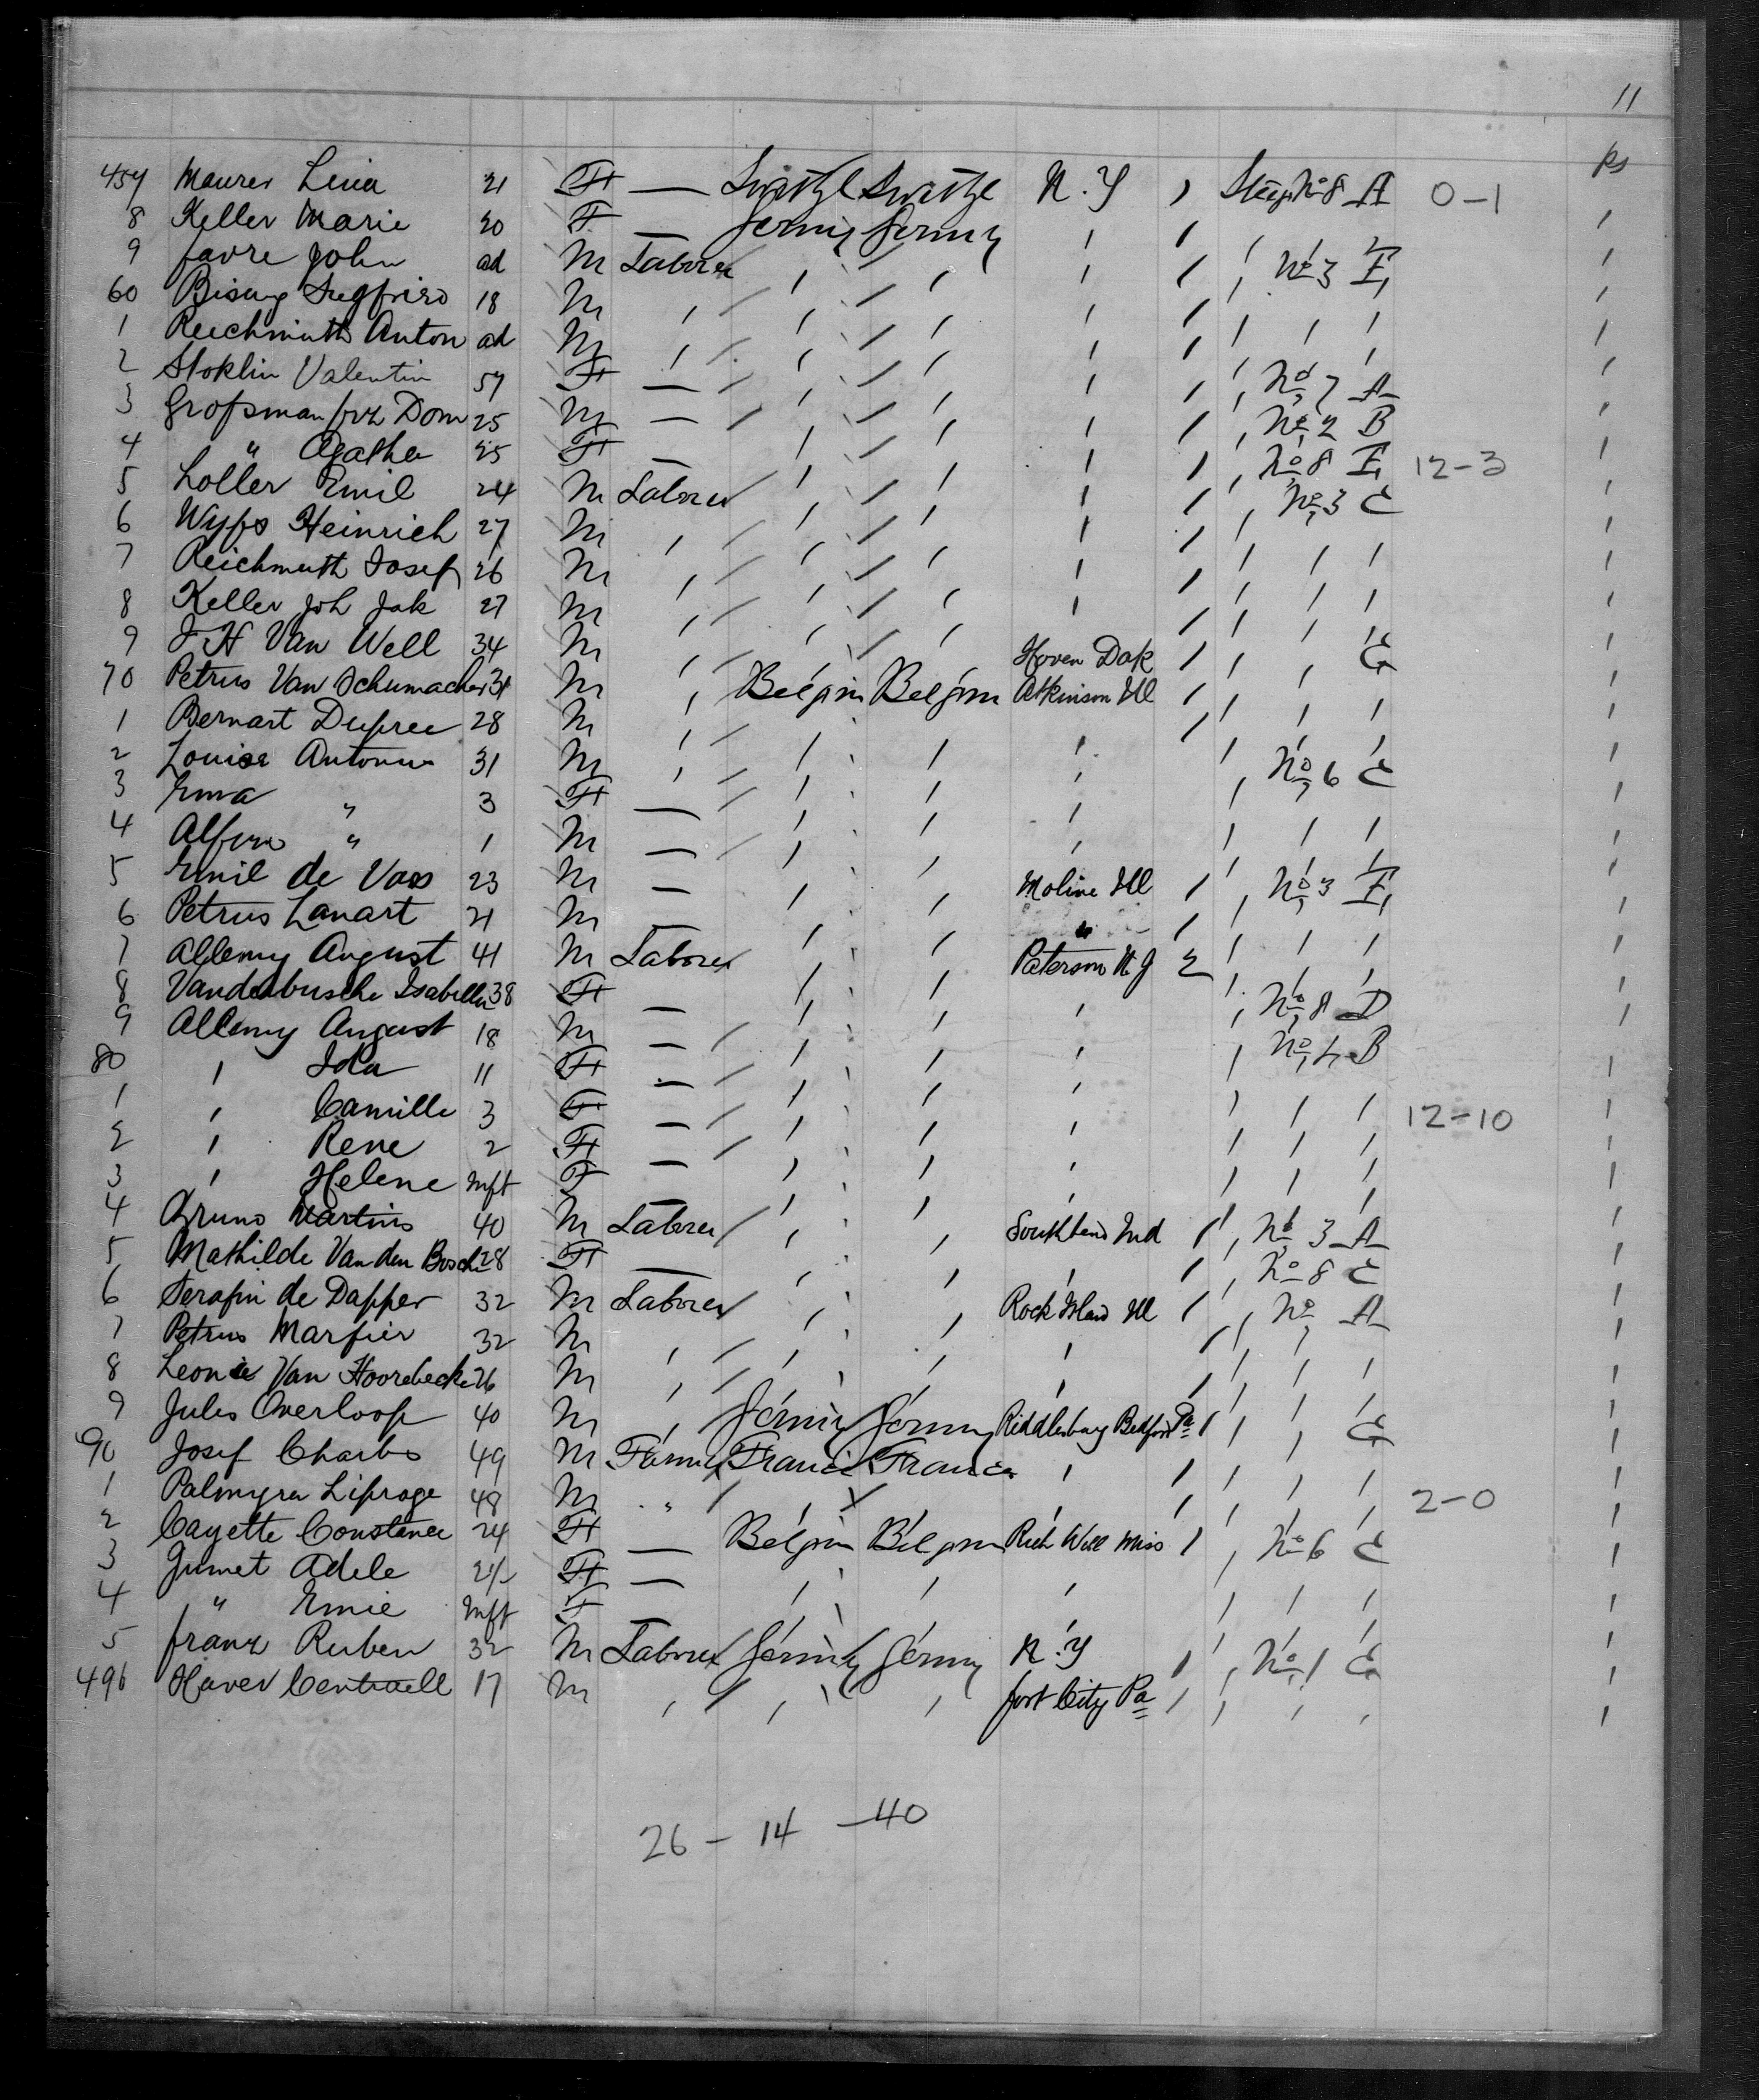 11
ps
457 Maurer Lina 21 F — Switzl Switzl N.Y , Steeg No 8 A 0-1
8 Keller Marie 20 F — Germy Germy ' '
9 Favre John ad M Laborer ' ' ' ' ' No 3 E '
60 18 M ' ' ' ' ' ' ' ' '
1 Anton ad M ' ' ' ' ' ' ' ' '
2 Stoklin Valentin 57 F — ' ' ' ' ' No 7 A '
3 Grossman Dom 25 M — ' ' ' ' ' No 2 B '
4 " Agatha 25 F — ' ' ' ' ' No 8 E 12-3 '
5 Loller Emil 24 M Laborer ' ' ' ' ' No 3 C '
6 Wyss Heinrich 27 M ' ' ' ' ' ' ' ' '
7 Reichmuth Josef 26 M ' ' ' ' ' ' ' ' '
8 Keller Joh Jak 27 M ' ' ' ' ' ' ' ' '
9 J H Van Well 34 M ' ' ' Hoven Dak ' ' ' G '
70 Petrus Van Schumacher 31 M ' Belgim Belgim Atkinson Ill ' ' ' ' '
1 Bernart Dupree 28 M ' ' ' ' ' ' ' '
2 Louise Antonus 31 M ' ' ' ' ' No 6 C '
3 Ema " 3 F — ' ' ' ' ' ' '
4 " 1 M — ' ' ' ' ' ' '
5 Emil de Vos 23 M — ' ' Moline Ill ' ' No 3 E '
6 Petrus Lanart 21 M — ' ' " ' ' ' ' '
7 Allemy August 41 M Laborer ' ' Paterson N J 2 ' ' ' '
8 Vandenbusche Isabella 38 F — ' ' ' ' No 8 D '
9 Allemy August 18 M — ' ' ' ' No 4 B '
80 ' Ida 11 F — ' ' ' ' ' ' '
1 ' Camille 3 F — ' ' ' ' ' ' 12-10 '
2 ' Rene 2 F — ' ' ' ' ' ' '
3 ' Helene Inft F — ' ' ' ' ' ' '
4 Bruno Martins 40 M Laborer ' ' Southbend Ind ' ' No 3 A '
5 Mathilde Van den Bosche 28 F — ' ' ' ' ' No 8 C '
6 Serafin de Dapper 32 M Laborer ' ' Rock Island Ill ' ' No A '
7 Petrus Marfier 32 M ' ' ' ' ' ' ' ' '
8 Leonie Van Hoorebecke 26 M ' ' ' ' ' ' ' ' '
9 Jules Overloop 40 M ' Germy Germy Riddlesburg Bedford Pa ' ' ' G '
90 Josef Charles 49 M France France ' ' ' ' ' '
1 Palmyra 48 M " ' ' ' ' ' ' ' 2-0 '
2 Cayette Constance 24 F — Belgim Belgim Rich Will Miss ' ' No 6 C '
3 Jumet Adele F — ' ' ' ' ' ' '
4 " Emie Inft F ' ' ' ' ' ' '
5 Franz Ruben 32 M Laborer Germy Germy N.Y ' ' No 1 G '
496 17 M ' ' ' Fort City Pa ' ' ' ' '
26 - 14 - 40